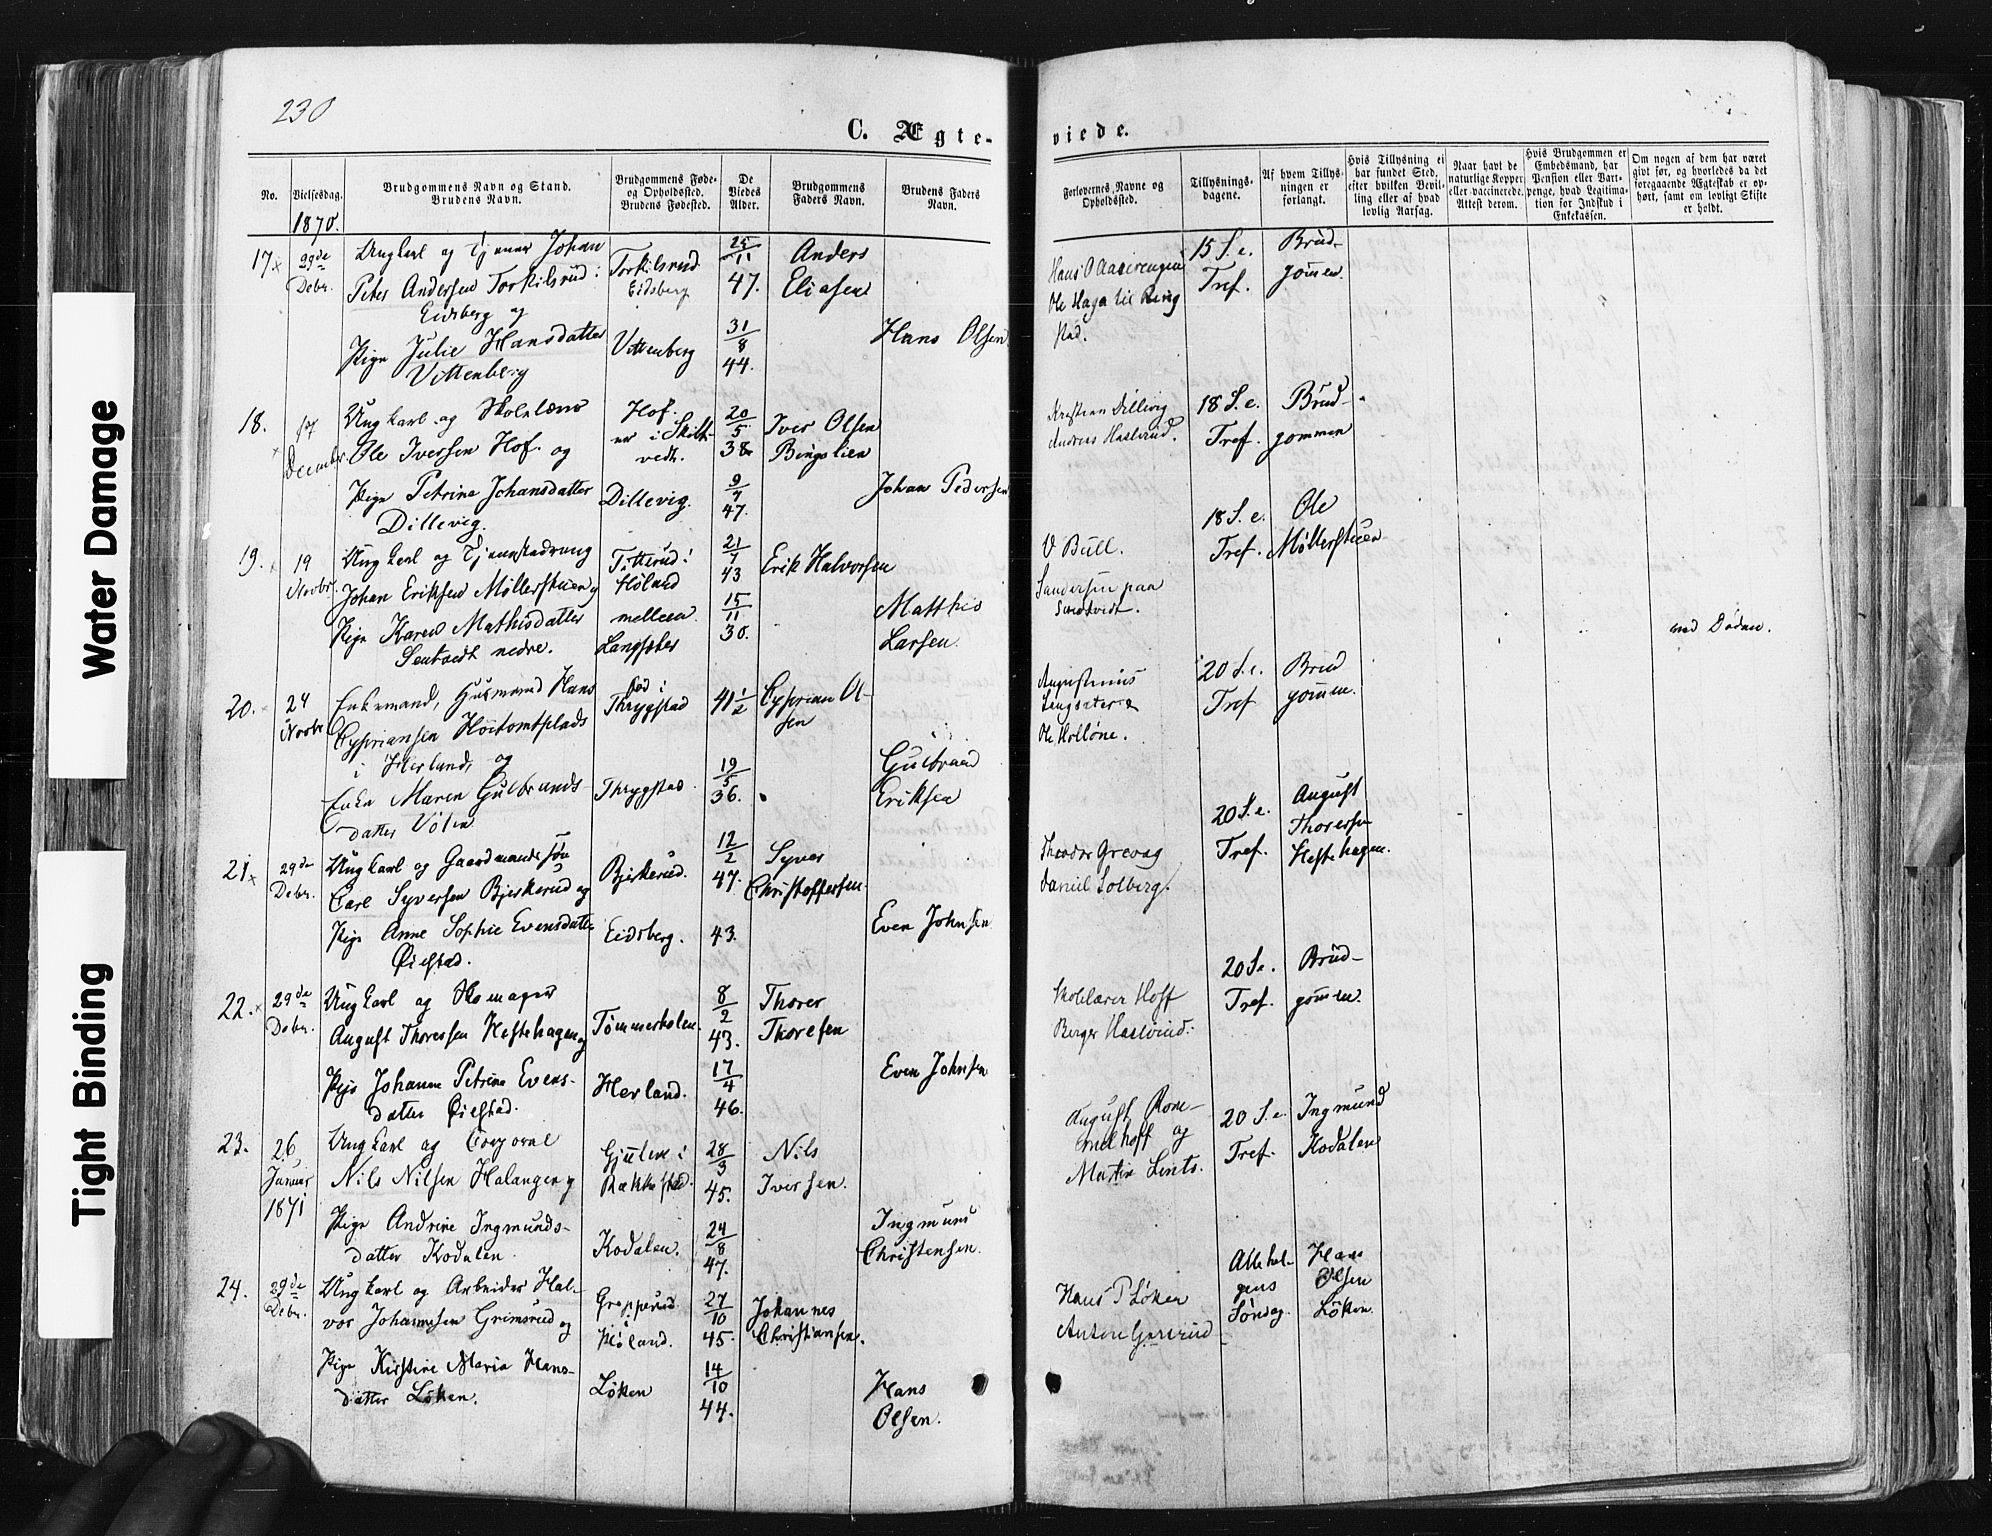 230
C. Ægte-
viede.
No.
Vielsesdag.
Brudgommens Navn og Stand.
Brudens Navn.
Brudgommens Føde-
og Opholdssted.
Brudens Fødested.
De
Viedes
Alder.
Brudgommens
Faders Navn.
Brudens Faders
Navn.
Forlovernes, Navne og
Opholdssted.
Tillysnings-
dagene.
Af hvem Tillys-
ningen er
forlangt.
Hvis Tillysning ei
har fundet Sted,
efter hvilken Bevil-
ling eller af hvad
lovlig Aarsag.
Naar havt de
naturlige Kopper
eller vaccinerede.
Attest derom.
Hvis Brudgommen er
Embedsmand, har
Pension eller Vart-
penge, hvad Legitima-
tion for Indskud i
Enkekassen.
Om nogen af dem har været
gift før, og hvorledes da det
foregaaende Ægteskab er op-
hørt, samt om lovligt Skifte
er holdt.
1870.
17 29de Debr.
Ungkarl og Tjener Johan
Peter Andersen Torkilsrud i
Eidsberg og
Pige Julie Hansdatter
Vittenberg
Torkilsrud
Eidsberg
Vittenberg
25/11 47.
31/8 44.
Anders
Eliasen
Hans Olsen
Hans O Aaserengen
Ole Haga til Ring
stad.
15 S. e.
Tref.
Brud-
gommen.
18. 17 December
Ungkarl og Skolelærer
Ole Iversen Hof. og
Pige Petrine Johansdatter
Dillevig.
Hof.
er i Skibt-
vedt.
Dillevig.
20/5 38
9/7 47.
Iver Olsen
Bingslien
Johan Pedersen
Kristian Dillevig
Andreas Haslerud.
18 S. e.
Tref.
Brud-
gommen
19. 19 Novbr.
Ungkarl og Tjenestedreng
Johan Eriksen Møllerstuen og
Pige Karen Mathisdatter
Sentvedt nedre.
Titterud i
Høland
mellem
Langsæter
21/7 43
15/11 30.
Erik Halvorsen
Matthis
Larsen.
O Bull.
Sandersen paa
Sentvedt.
18 S. e.
Tref.
Ole
Møllerstuen
ved Døden.
20. 24 Novbr
Enkemand, Husmand Hans
Cypriansen Hoitomtplads
i Herland, og
Enke Maren Gulbrands
datter Volen
Fød i
Thrygstad
Thrygstad.
41 1/2
19/5 36.
Cyprian Ol-
sen
Gulbrand
Eriksen
Augustinus
Lengsæter
Ole Holløne.
20 S. e.
Tref
Brud
gommen.
21 29de Debr.
Ungkarl og Gaardmandssøn
Carl Syversen Bjerkerud og
Pige Anne Sophie Evensdatter
Øiestad.
Bjerkerud.
Eidsberg.
12/2 47.
43.
Syver
Christoffersen.
Even Johnsen
Theodor Grevag
Daniel Solberg.
20 S. e.
Tref.
August
Thoresen
Heftehagen.
22. 29de Debr.
Ungkarl og Skomager
August Thoresen Heftehagen og
Pige Johanne Petrine Evens-
datter Øiestad.
Tømmerholen.
Herland.
8/2 43.
17/4 46.
Thorer
Thoresen
Even Johnsen
Skolelærer Hoff
Berger Haslerud.
20 S e.
Tref.
Brud-
gommen.
23. 26 Januar 1871
Ungkarl og Corporal
Nils Nilsen Halangen og
Pige Andrine Ingmunds-
datter Kodalen
Gjulem i
Rakkestad.
Kodalen.
28/3 45.
24/8 47.
Nils
Iversen.
Ingmund
Christensen.
August Rom-
melhoff og
Martin Lints.
20 S. e.
Tref.
Ingmund
Kodalen
24. 29de Debr.
Ungkarl og Arbeider Hal-
vor Johannesen Grimsrud og
Pige Kirstine Maria Hans-
datter Løken.
Grepperud
i
Høland.
Løken
27/10 45.
14/10 44.
Johannes
Christiansen.
Hans
Olsen.
Hans P Løken
Anton Gjererud
Allehel-
gens
Søndag.
Hans
Olsen
Løken
Water Damage
Tight Binding